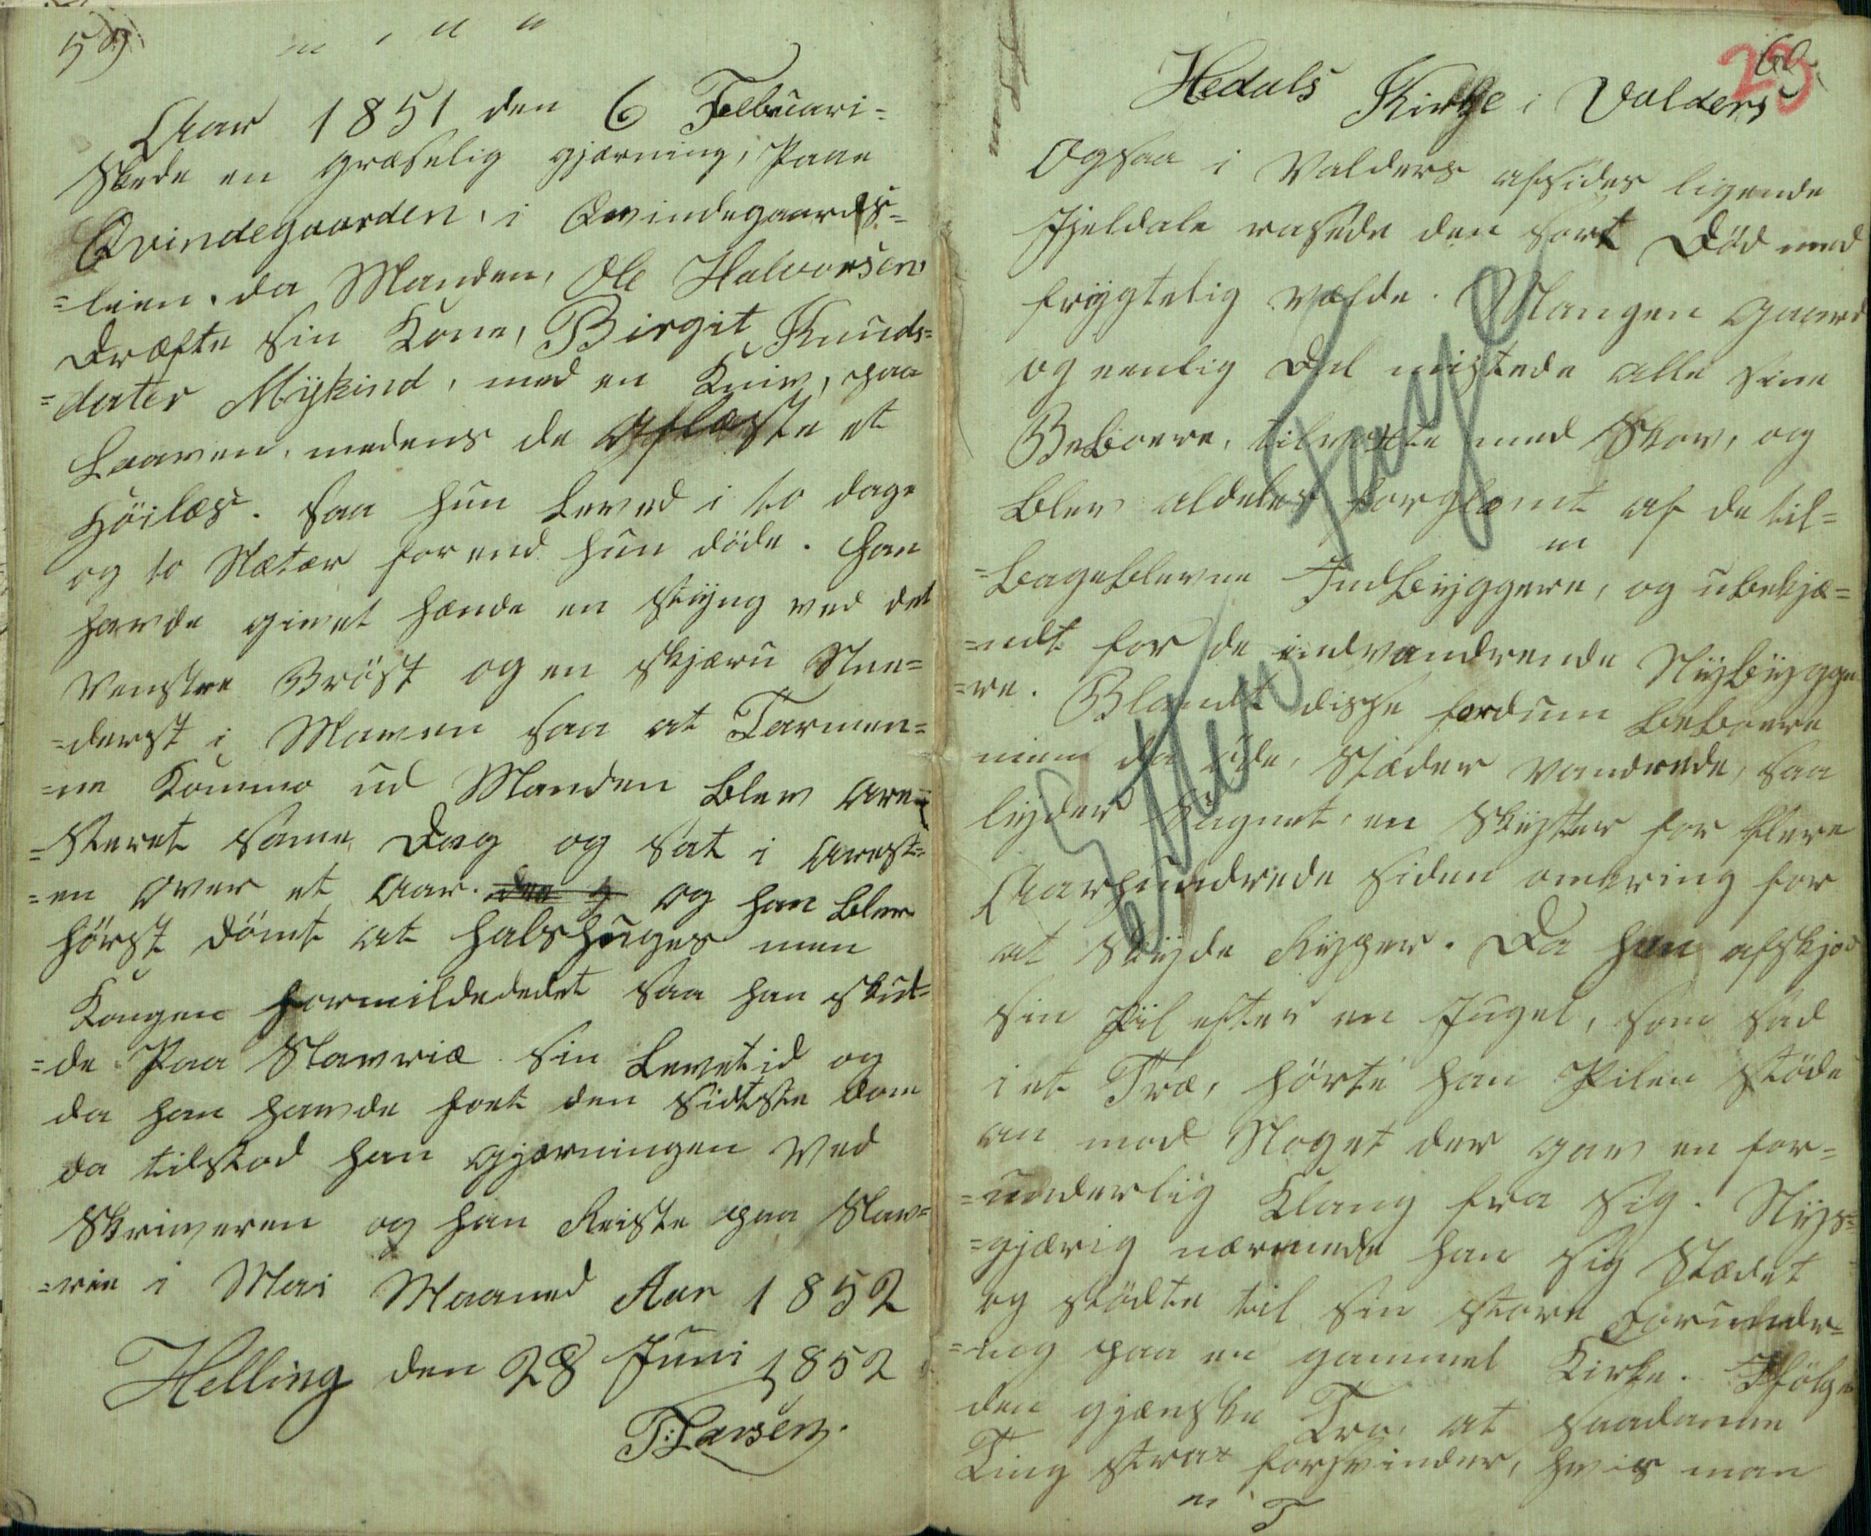 59
Aar 1851 den 6 Februari=
Skede en græselig gjærning, Paae
Qvindegaarden, i Qvindegaards=
=leien. da Manden, Ole Halvorsen
Dræfte sin Kone, Birgit Knuds=
=dater Mÿkind, med en Kniv, paa
Laaven, medens de aflæste et
Höilæs. Saa hun Leved i to dage
og to Nætær for end hun döde. han
havde givet hænde en stÿng ved det
Venstre Bröst og en skjæru Nee=
=derst i Maven saa at Tarmen=
=ne Kommo ud Manden blev are=
=steret same Dag og sat i Arest=
=en over et Aar. og han blev
hörst dömt at halshuges men
Kongen formildededet saa han skul=
=de Paa Slavriæ sin Levetid og
da han havde faet den sidtste dom
da tilstod han gjærningen Ved
Skriveren og han Reiste paa Slav=
=rie i Mai Maaned Aar 1852
Helling den 28 Juni 1852
T. Larsen.
60
23
Hedals Kirke i Valders
Ogsaa i Valders afsides ligende
Fjeldale rasede den sort Död med
frÿgtelig Vælde. Mangen Gaard
og eenlig Dal mistede alle sine
Beboere, tilvokste med Skov, og
blev aldeles forglæmt af de til=
=bageblevne Indbÿggere, og ubekjæ=
=ndt for de indvandrende Nÿbÿgge
=re. Blandt disse fordum beboere
men da øde, Stæder vandrede, saa
lÿder Sagnet, en Skÿtter for flere
Aarhundrede siden omkring for
at skÿde Rÿper. Da han afskjød
sin Pil efter en Fugel, som sad
i et Træ, hörte han Pilen stöde
an mod Noget der gav en for=
=underlig Klang fra sig. Nÿs=
=gjærig nærmede han sig Stædet
og stödte til sin store Forundr=
=ing paa en gammel Kirke. Ifölge
den gjænske Tro, at saadanne
Ting strax forsvinder, hvis man